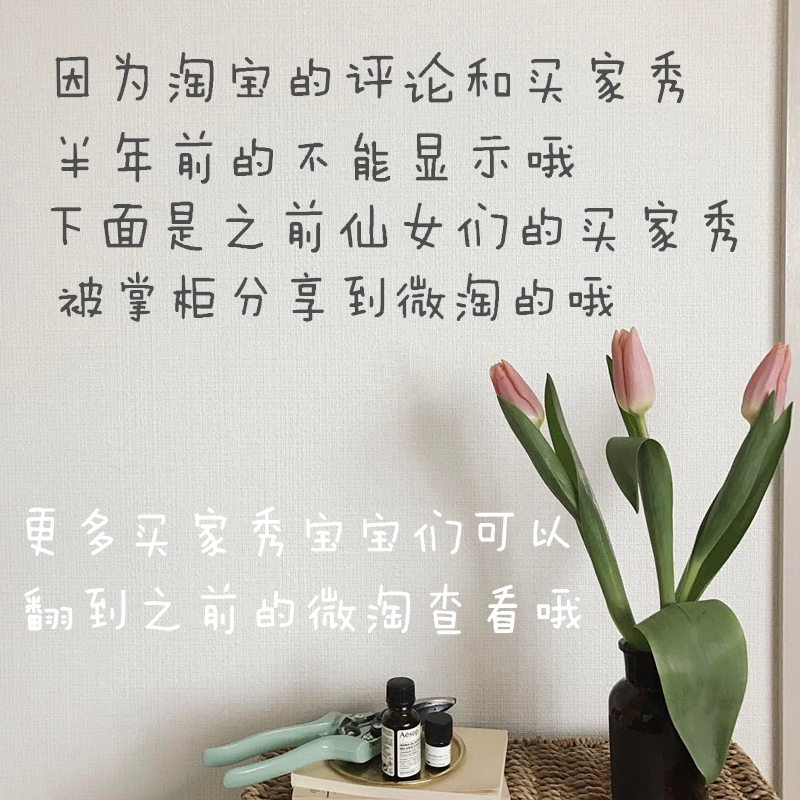 因为淘宝的评论和买家秀
半年前的不能显示哦
下面是之前仙女们的买家秀
被掌柜分享到微淘的哦
更多买家秀宝宝们可以
翻到之前的微淘查看哦
Aesop